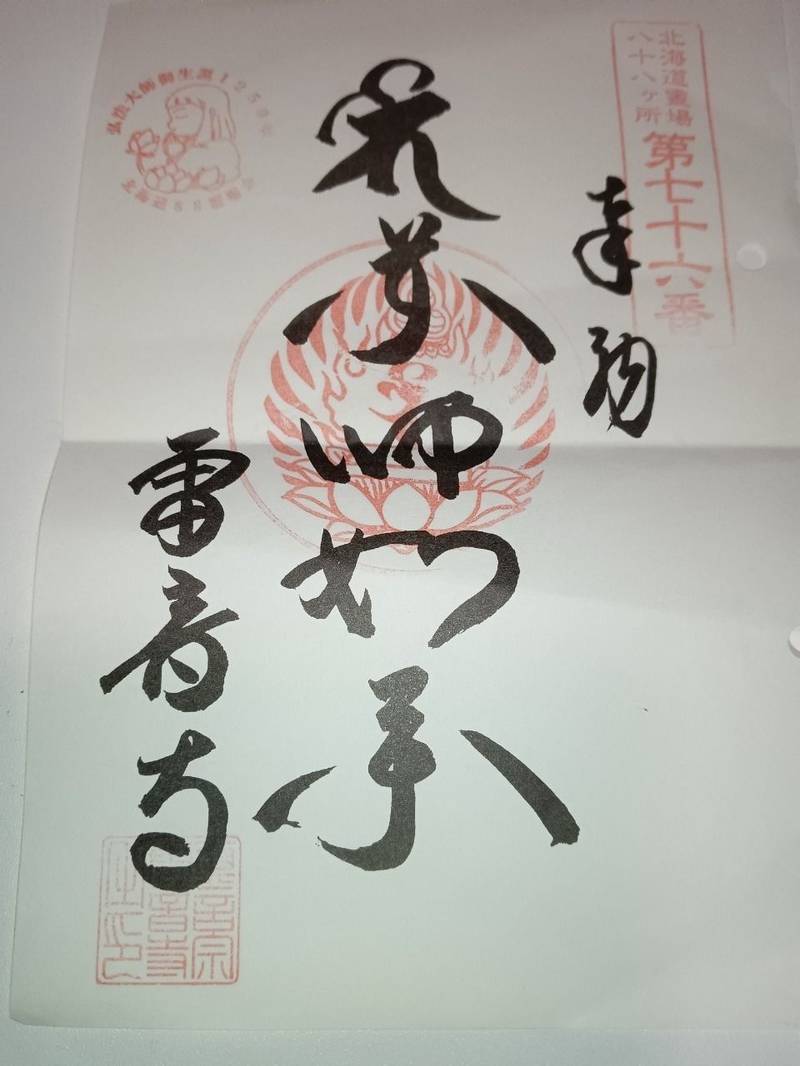 北海道霊場
八十八ヶ所
第七十六番
奉納
薬師如来
雷音寺
弘法大師御生誕1250年
北海道88霊場会